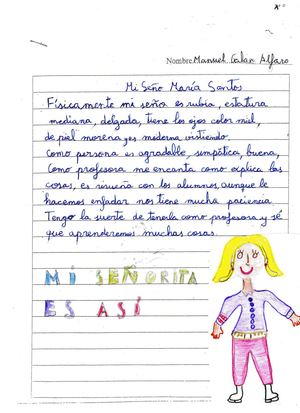 Nombre Manuel Galan Alfaro
Mi Seño María Santos
Físicamente mi seño es rubia, estatura
mediana, delgada, tiene los ojos color miel,
de piel morena y es moderna vistiendo.
Como persona es agradable, simpática, buena,
Como profesora me encanta como explica las
cosas, es risueña con los alumnos, aunque le
hacemos enfadar nos tiene mucha paciencia.
Tengo la suerte de tenerla como profesora y sé
que aprenderemos muchas cosas.
MI SEÑORITA
ES ASÍ